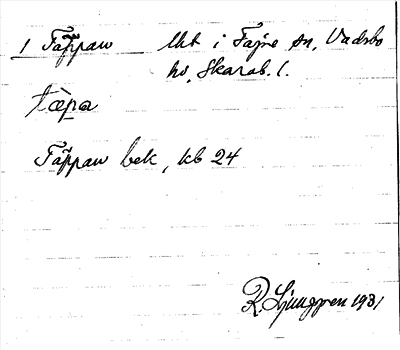 1 Täppan Ubt i Fägre sn, Vadsbo
hd, Skarab. l.
tæ̀pa
Täppan bek, kb 24
R. Ljunggren 1931